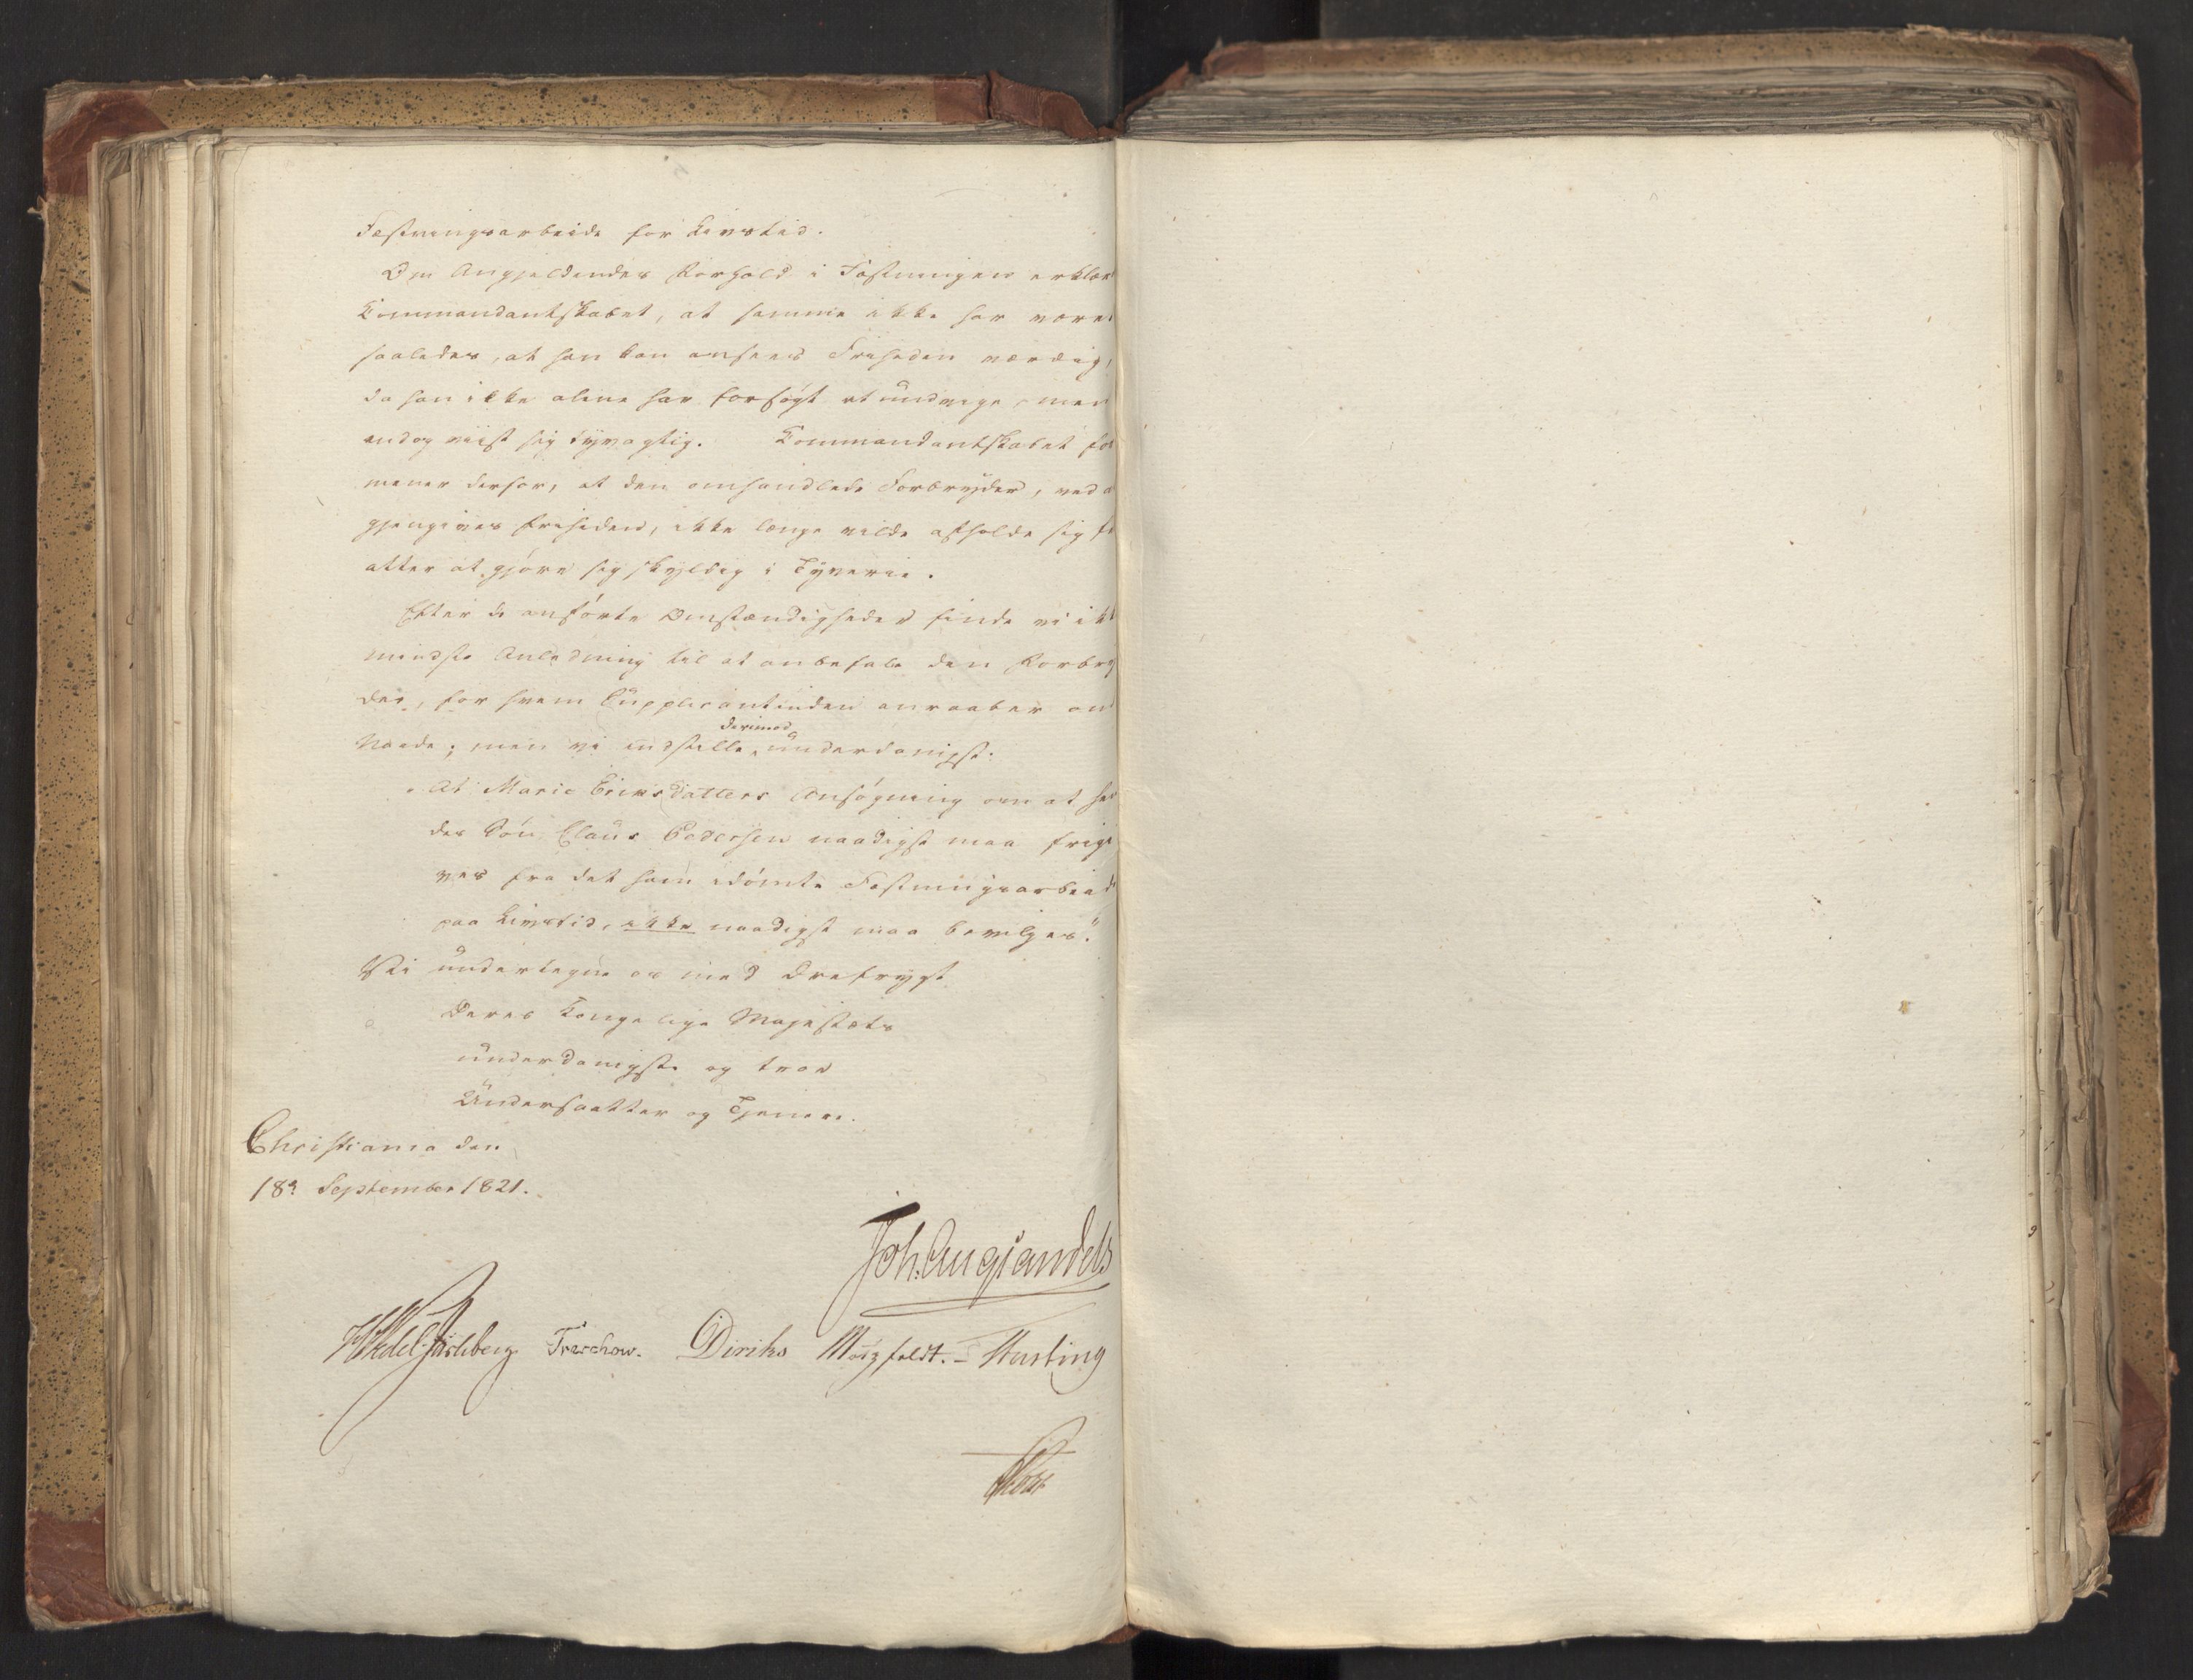 Fæstningsarbeide for Livstid.
Om Angjeldendes Forhold i Fæstningen erklær
Commandantskabet, at samme ikke har være
saaledes, at han kan ansees Friheden værdig,
da han ikke alene har forsøgt at undvige, men
endog viist sig tyvagtig. Commandantskabet for
mener derfor, at den omhandlede Forbryder, ved a
gjengives Friheden, ikke længe vilde afholde sig fr
atter at gjøre sig skyldig i Tyverie.
Efter de anførte Omstændigheder finde vi ikk
mindste Anledning til at anbefale den Forbry
der, for hvem Supplicantinden anraaber om
Naade; men vi indstille derimod underdanigst:
"At Marie Erichsdatters Ansøgning om at hen
des Søn Claus Pedersen naadigst maa frigi
ves fra det ham idømte Fæstningsarbeide
paa Livstid, ikke naadigst maa bevilges".
Vi undertegne os med Ærefrygt
Deres Kongelige Majestæts
underdanigste og troe
Undersaatter og Tjenere.
Christiania den
18de September 1821.
Joh. Aug Sandels
HWedel Jarlsberg Treschow. Diriks Motzfeldt. - Husting